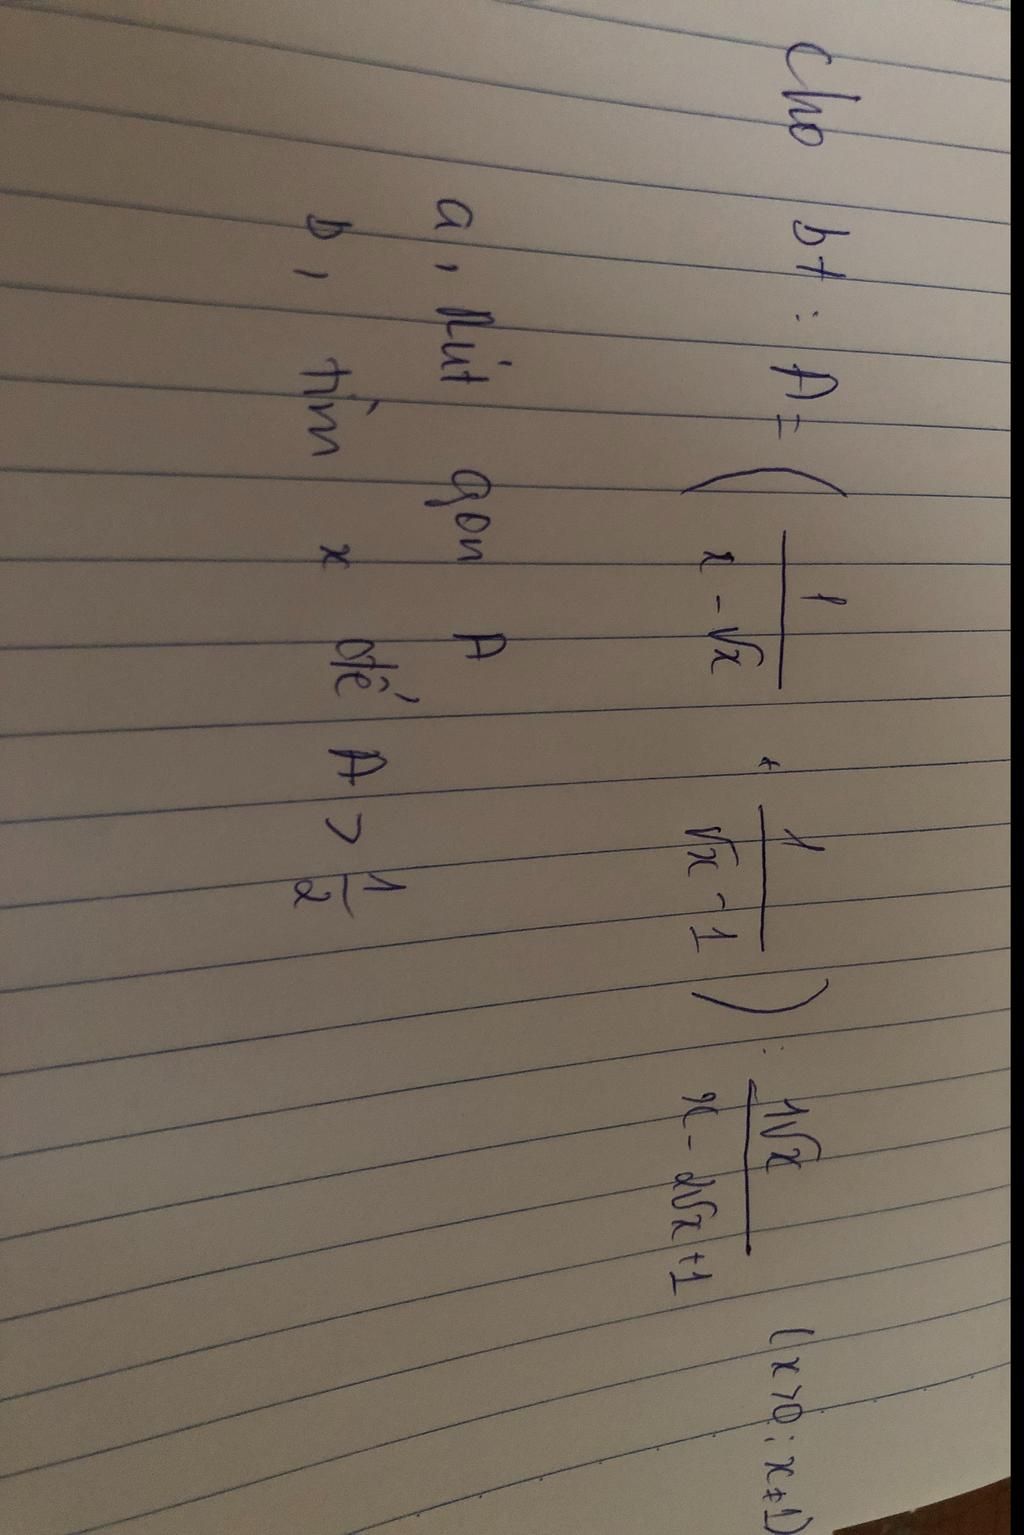 Cho bt : A = ( 1/(x - √x) + 1/(√x - 1) ) : 1√x/(x - 2√x + 1) (x > 0 ; x ≠ 1)
a, Rút gọn A
b, tìm x để A > 1/2